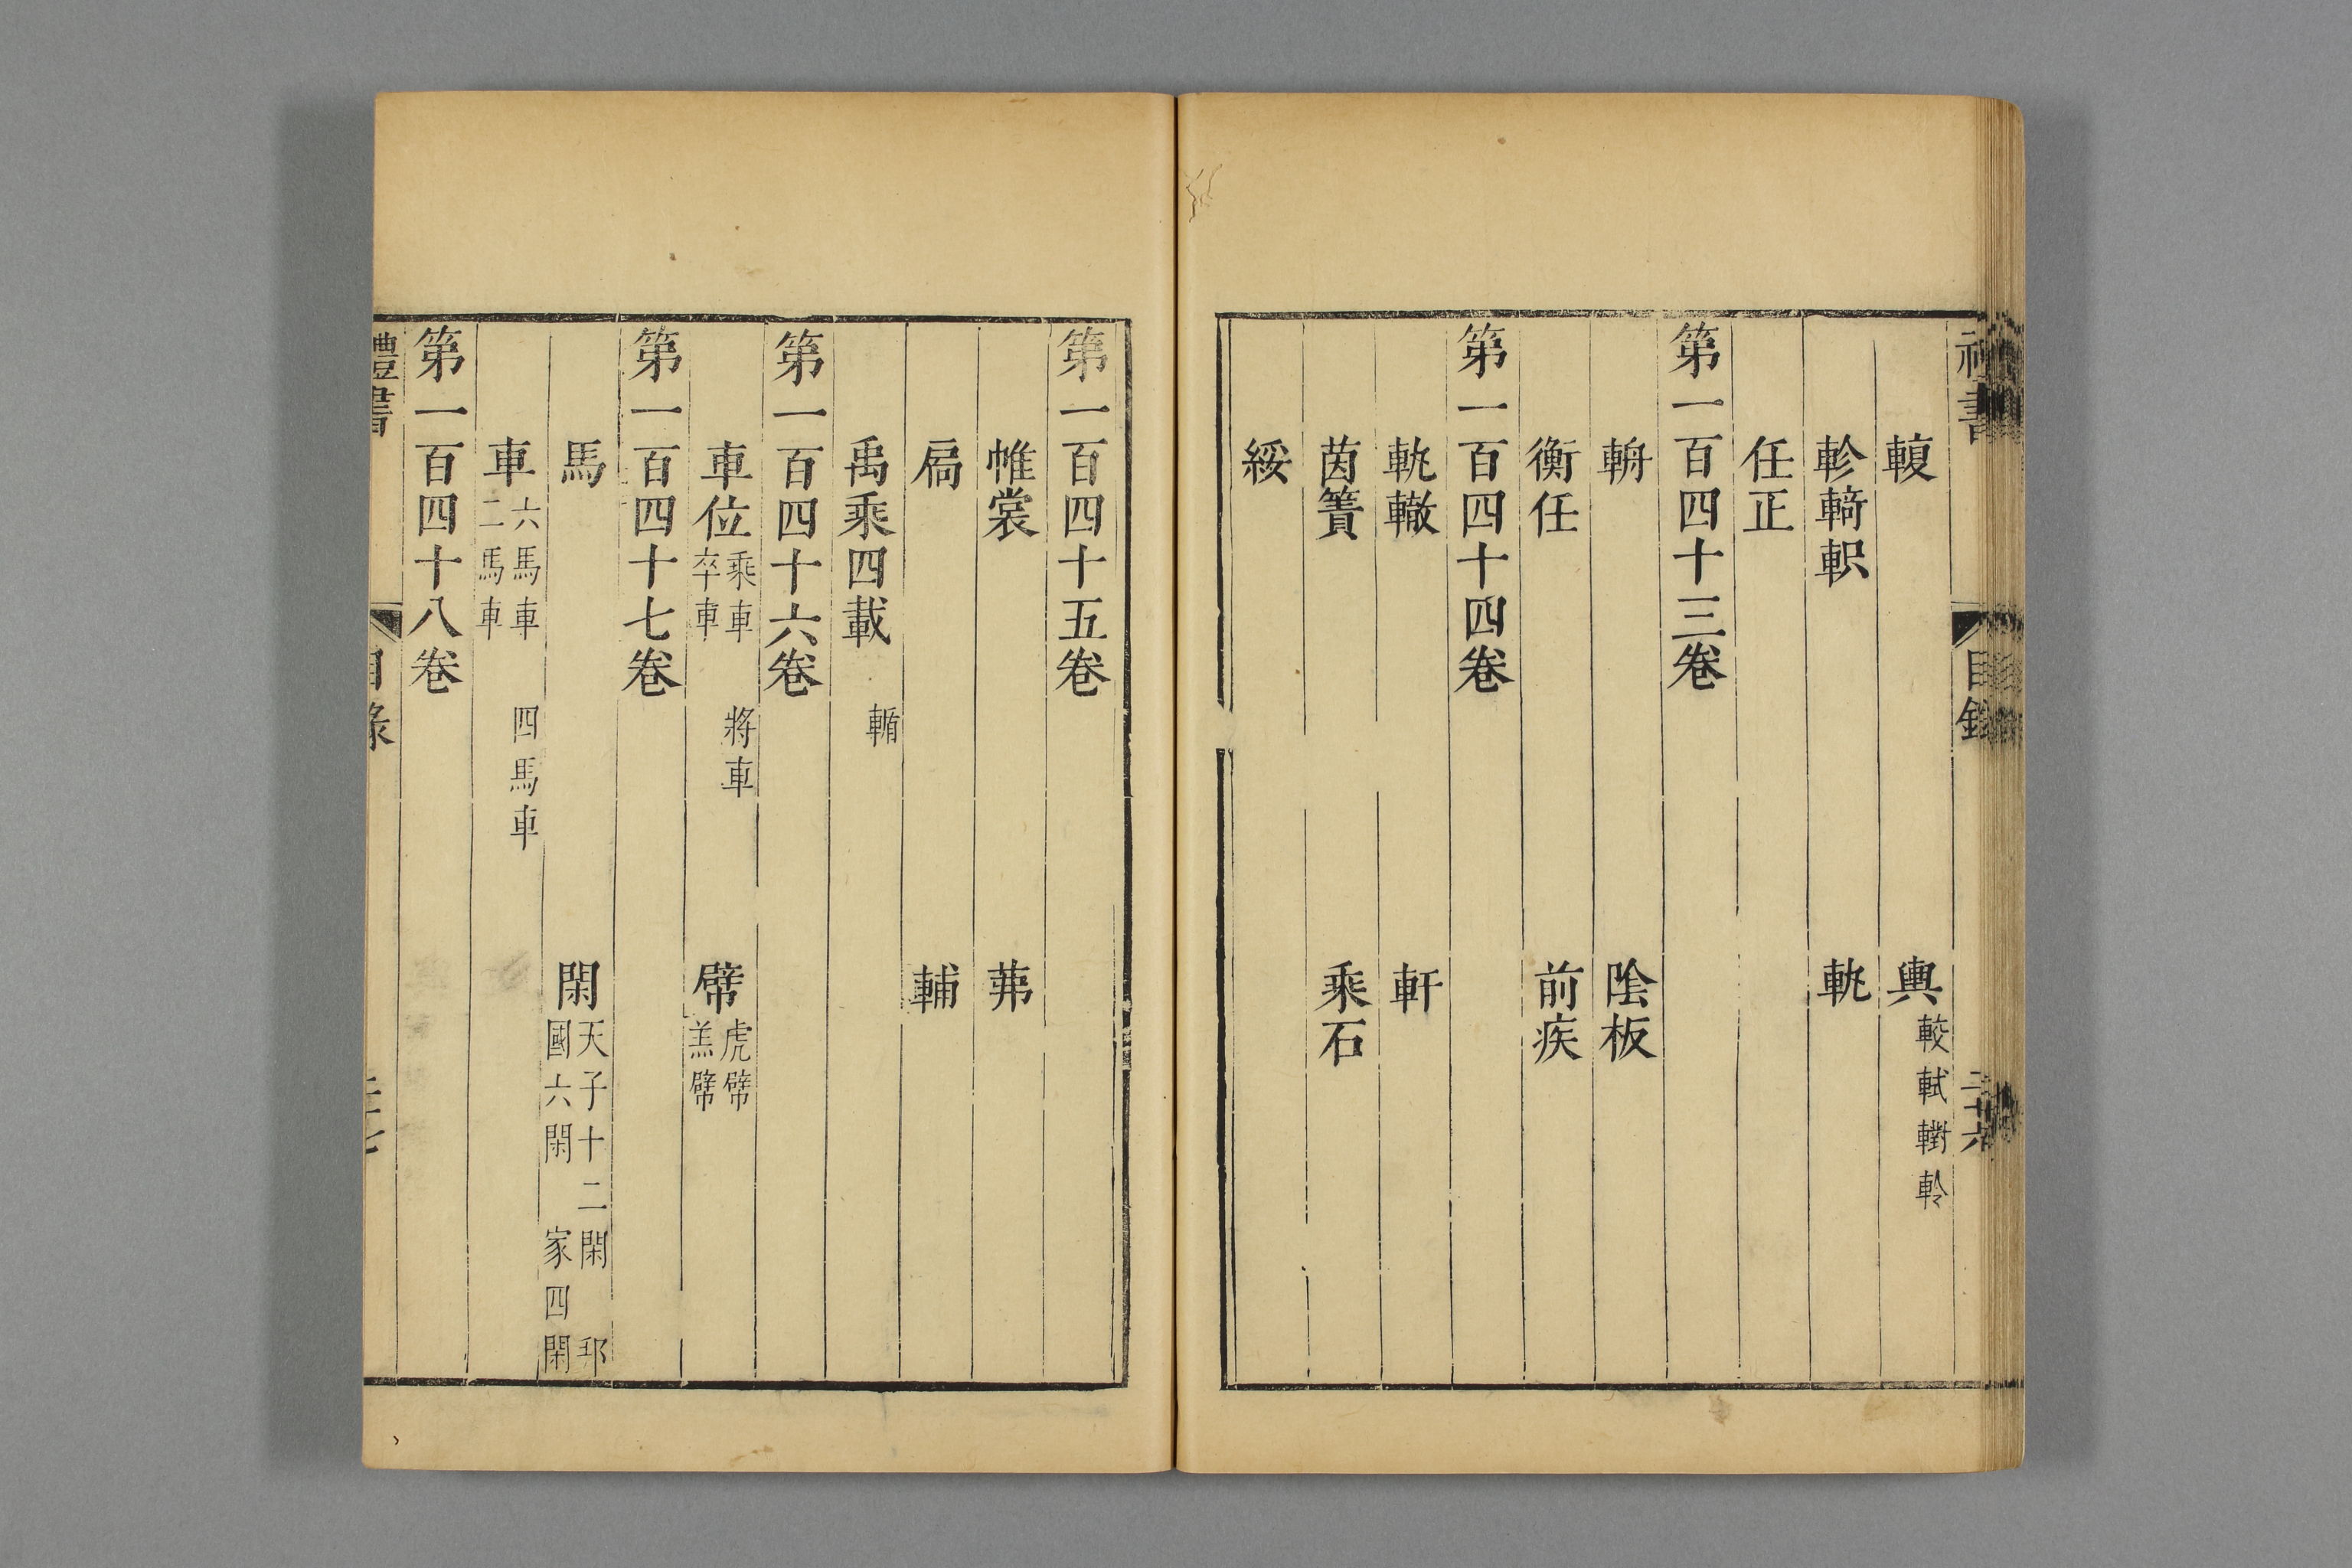 禮書 目錄 二十六
輹 輿 較軾轛軨
軫輢軹 軓
任正
第一百四十三卷
輈 陰板
衡任 前疾
第一百四十四卷
軌轍 軒
茵簀 乘石
綏
第一百四十五卷
帷裳 茀
扃 輔
禹乘四載 輴
第一百四十六卷
車位 乘車 將車 卒車 幦 虎幦 羔幦
第一百四十七卷
馬 閑 天子十二閑 邦國六閑 家四閑
車 六馬車 四馬車 二馬車
第一百四十八卷
禮書 目錄 二十七